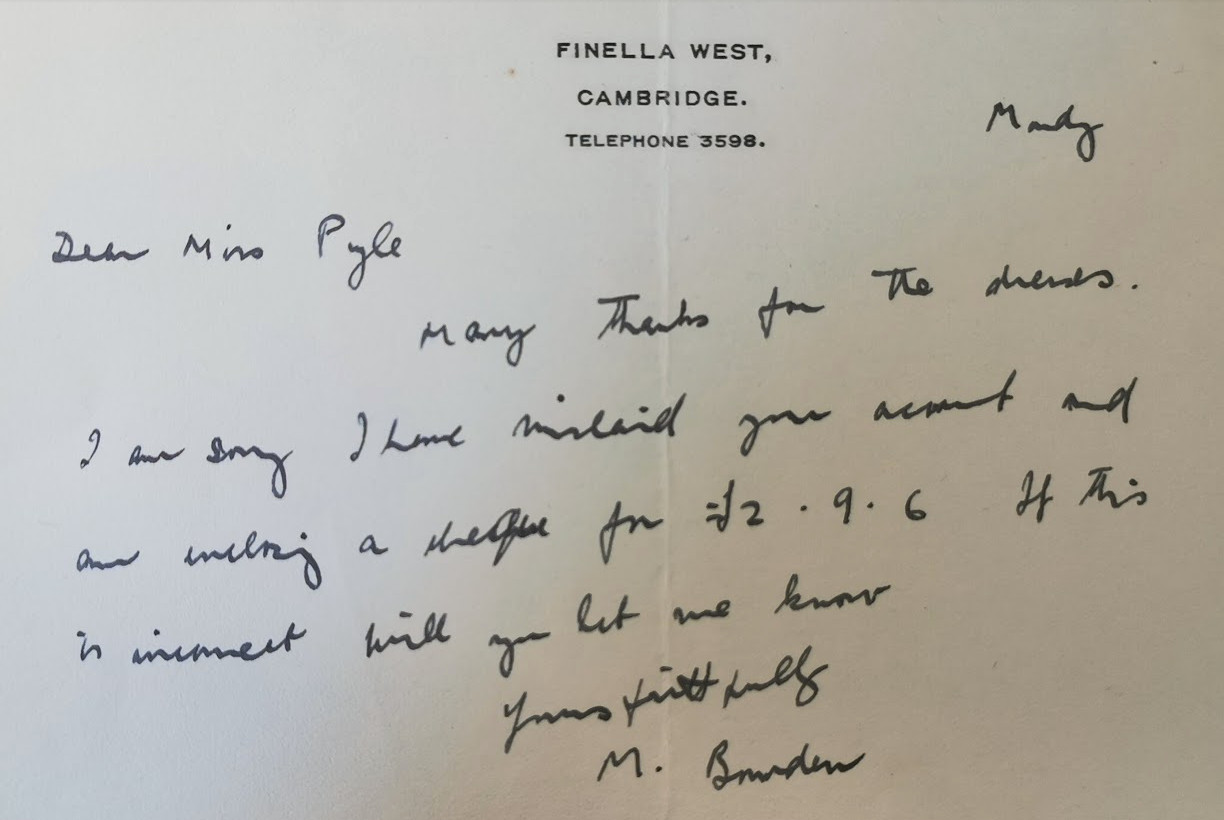 FINELLA WEST,
CAMBRIDGE.
TELEPHONE 3598.
Monday
Dear Miss Pyle
Many Thanks for The dresses.
I am sorry I have mislaid your account and
am enclosing a cheque for £2 . 9 . 6 If this
is incorrect will you let me know
Yours faithfully
M. Bowden